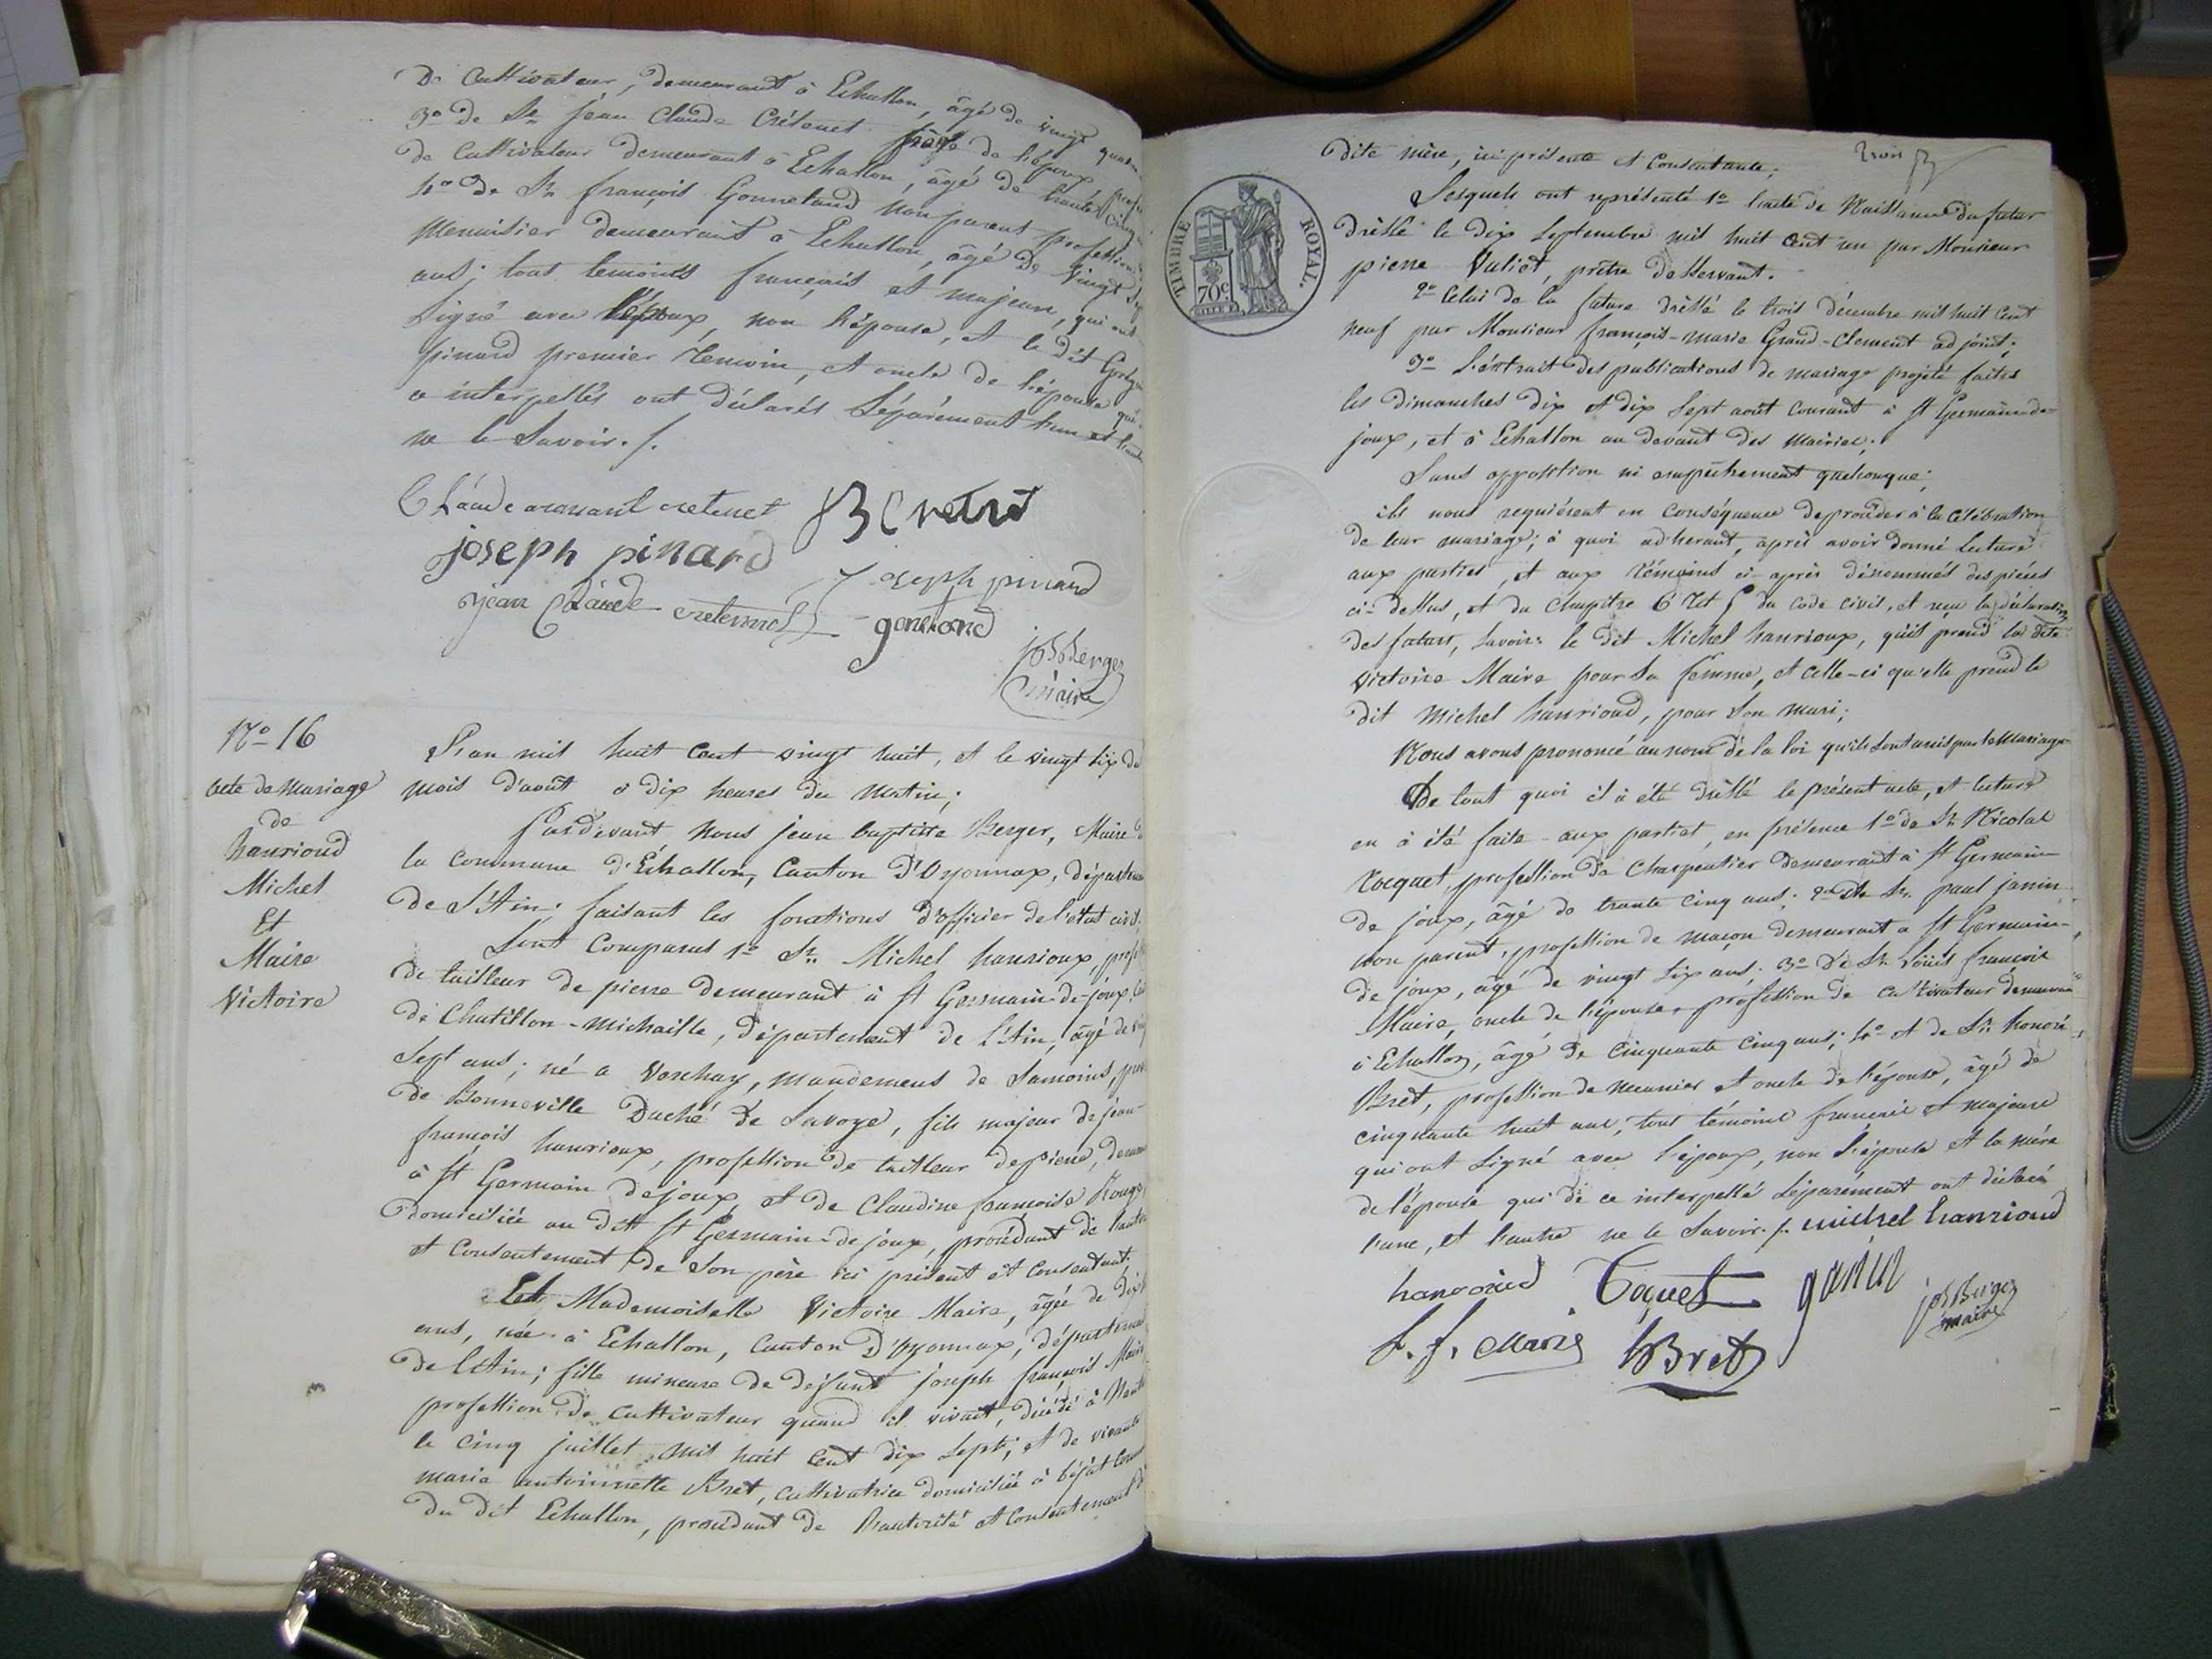 De Cultivateur, demeurant à Echallon, âgé de vingt
3º de Sr. jean Claude Crétenet frère de l'époux
de Cultivateur demeurant à Echallon, âgé de trente cinq
4º de Sr. françois Gonneland non parent profession
Menuisier demeurant à Echallon, âgé de vingt
ans; tous temoins français et majeurs, qui ont
Signé avec l'époux, non l'épouse, et le dit
pinard premier temoin, et oncle de l'épouse qui
ce interpellés ont déclarés Séparément l'un et l'autre
ne le Savoir. /.
Claude cretenet
joseph pinard
joseph pinard
jean Claude cretennet
jB Berger
maire
Nº 16
acte de Mariage
de
hanrioud
Michel
Et
Maire
Victoire
L'an mil huit Cent vingt huit, et le vingt six du
mois d'août à dix heures du Matin;
Pardevant Nous jean baptiste Berger, Maire
la Commune d'Échallon, Canton d'Oyonnax, départem
De L'Ain; faisant les fonctions d'officier de l'état civil
Sont Comparus 1º Sr. Michel hanrioux,
de tailleur de pierre demeurant à St Germain-de-joux,
de Chatillon-Michaille, département de L'Ain, âgé de
Sept ans; né a Verchay, mandemens de Samoins,
de Bonneville Duché de Savoye, fils majeur de jean
françois hanrioux, profession de tailleur de pierre,
à St Germain de joux, et de Claudine françoise
domiciliée au dit St Germain-de joux, procédant de l'autor
et Consentement de Son père ici présent et Consentant.
Et Mademoiselle Victoire Maire, âgée de dix
ans, née à Echallon, Canton d'Oyonnax, départem
De L'Ain; fille mineure de defunt joseph françois Maire
profession de Cultivateur quand il vivait, décédé à
le cinq juillet mil huit Cent dix Sept; et de vivante
marie antoinette Bret, cultivatrice domiciliée à
du dit Echallon, procédant de l'autorité et Consentement
TIMBRE ROYAL.
70c
dite mère, ici présente et Consentante;
trois
Lesquels ont représenté 1º l'acte de Naissance du futur
dressé le dix Septembre mil huit Cent un par Monsieur
pierre Valiet, prêtre desservant.
2º Celui de la future dressé le trois décembre mil huit Cent
neuf par Monsieur françois-marie Grand-Clement adjoint;
3º L'extrait des publications de mariage projeté faites
les dimanches dix et dix Sept août Courant à St Germain-de-
joux, et à Echallon au devant des Mairies;
Sans opposition ni empêchement quelconque;
ils nous requièrent en Conséquence de procéder à la Célébration
de leur mariage; à quoi adherant, après avoir donné lecture
aux parties, et aux témoins ci-après dénommés des pièces
ci-dessus, et du chapitre 6 tit 5 du Code Civil, et reçu la déclaration
des futurs, Savoir: le dit Michel hanrioux, qu'il prend la dite
Victoire Maire pour Sa femme, et Celle-ci qu'elle prend le
dit Michel hanrioud, pour Son mari;
Nous avons prononcé au nom de la loi qu'ils Sont unis par le Mariage
De tout quoi il à été dréssé le présent acte, et lecture
en à été faite aux parties, en présence 1º de Sr Nicolas
Tocquet, profession de Charpentier demeurant à St Germain
de joux, âgé de trente cinq ans; 2º de Sr. paul janin
non parent, profession de maçon demeurant a St Germain-
de joux, âgé de vingt Six ans; 3º De Sr Louis françois
Maire, oncle de l'épouse, profession de Cultivateur demeurant
à Echallon, âgé de Cinquante Cinq ans; 4º et de Sr honoré
Bret, profession de meunier et oncle de l'épouse, âgé de
cinquante huit ans; tous témoins français et majeurs
qui ont Signé avec l'époux, non l'épouse et la mère
de l'épouse qui de ce interpellé Séparément ont déclaré
l'une, et l'autre ne le Savoir. /. michel hanrioud
hanrioud Toquet ganin
jB Berger
maire
L. f. Maire hBret